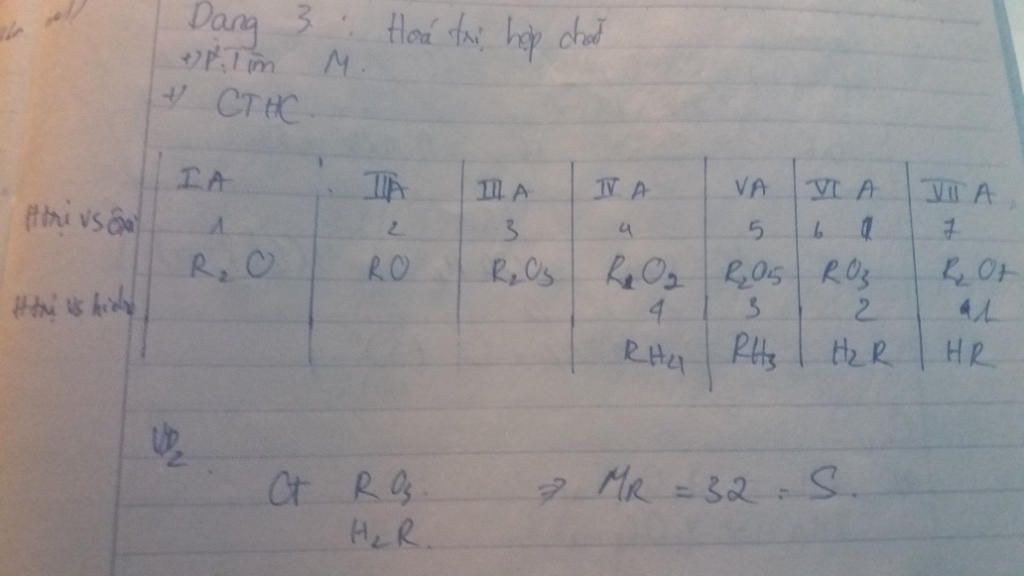 Dạng 3 : Hoá trị hợp chất
+) P. Tìm M.
+) CTHC.
IA IIA IIIA IV A VA VI A VII A
Htrị vs Oxi 1 2 3 4 5 6 7
R2O RO R2O3 RO2 R2O5 RO3 R2O7
Htrị vs hidro 4 3 2 1
RH4 RH3 H2R HR
VD2
Ct RO3. => MR = 32 = S.
H2R.